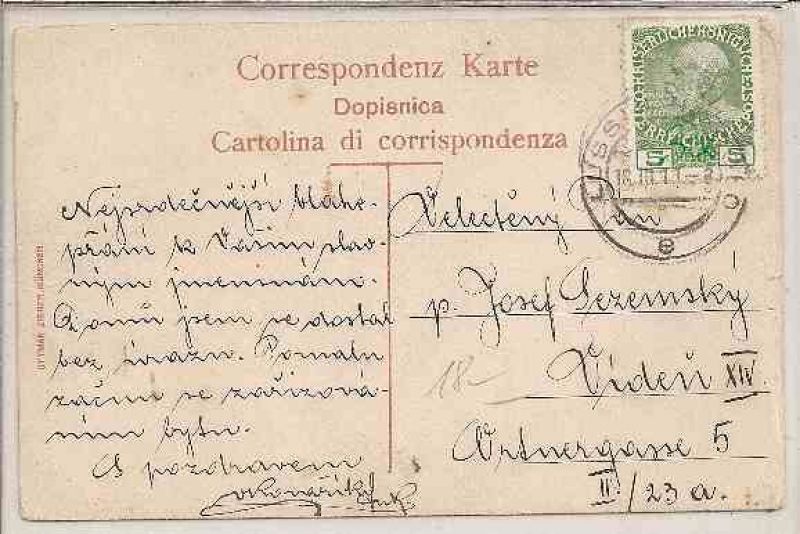 Correspondenz Karte
Dopisnica
Cartolina di corrispondenza
5 5
LISSA
18.III.11
e
Nejsrdečnější blaho-
přání k Vašim slav-
ným jmeninám.
jsem se dostal
bez úrazu. Pomalu
začnu se zařizová-
ním bytu.
S pozdravem
Velectěný Pan
p. Josef Sezemský
18-
Vídeň XIV.
Ortnergasse 5
II/23 a.